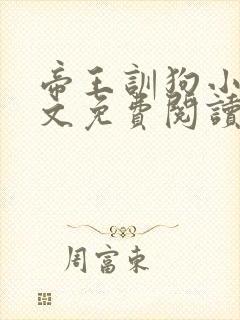 帝王訓狗小
文免費閱讀
周富東